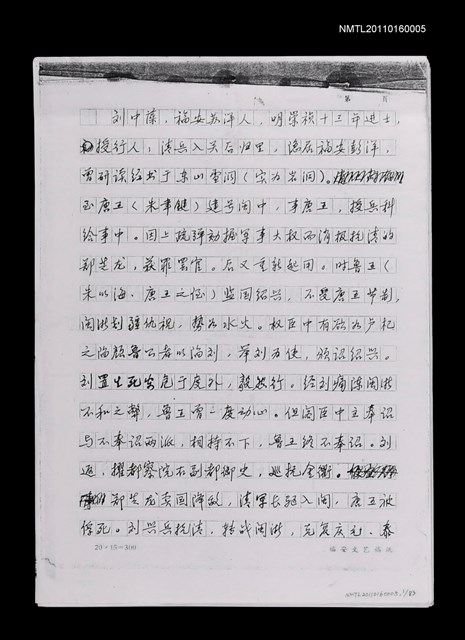 NMTL20110160005
第 页
刘中藻，福安苏洋人，明崇祯十三年进士，
授行人；清兵入关后归里，隐居福安彭洋，
曾研读经书于东山雪洞（实为岩洞）。
至唐王（朱聿键）建号闽中，事唐王，授兵科
给事中。因上疏弹劾握军事大权而消极抗清的
郑芝龙，获罪罢官。后又重新起用。时鲁王（
朱以海，唐王之侄）监国绍兴，不受唐王节制，
闽浙划疆仇视，势如水火。权臣中有欲如卢杞
之陷颜鲁公者以陷刘，举刘为使，颁诏绍兴。
刘置生死安危于度外，毅然行。经刘痛陈闽浙
不和之弊，鲁王曾一度动心。但闽臣中主奉诏
与不奉诏两派，相持不下，鲁王终不奉诏。刘
返，擢都察院右副都御史，巡抚金衢。
郑芝龙卖国降敌，清军长驱入闽，唐王被
俘死。刘兴兵抗清，转战闽浙，克复庆元、泰
20×15=300
福安文艺稿纸
NMTL20110160005.1/83